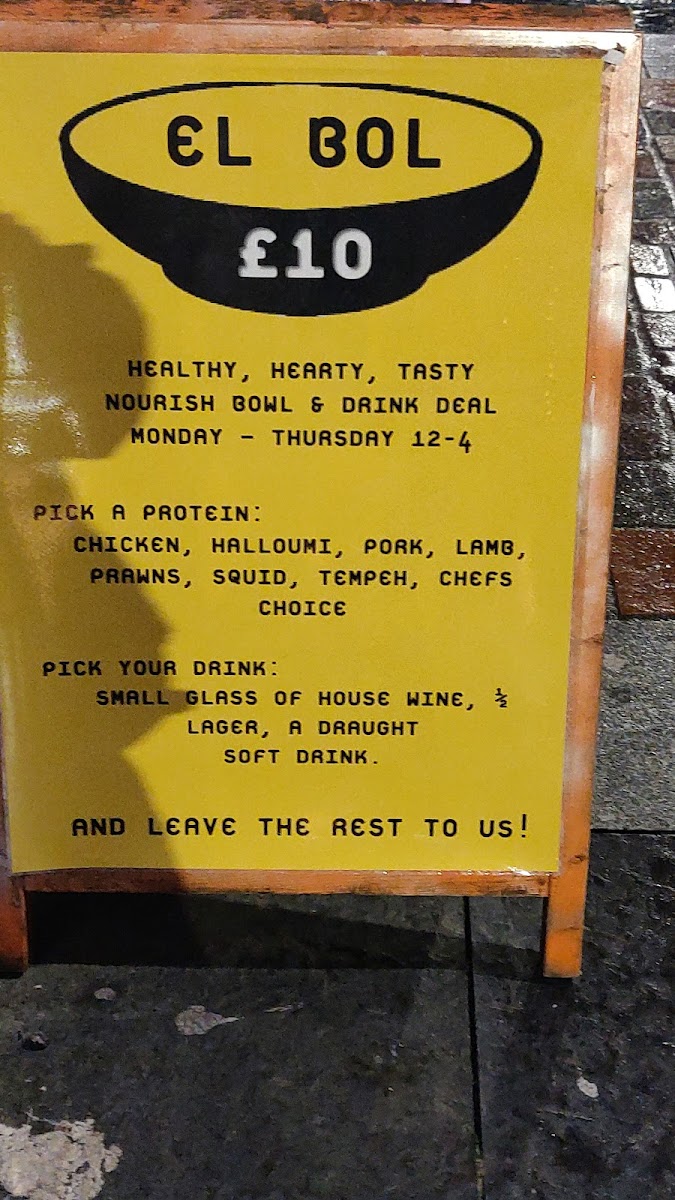 EL BOL
£10
HEALTHY, HEARTY, TASTY
NOURISH BOWL & DRINK DEAL
MONDAY - THURSDAY 12-4
PICK A PROTEIN:
CHICKEN, HALLOUMI, PORK, LAMB,
PRAWNS, SQUID, TEMPEH, CHEFS
CHOICE
PICK YOUR DRINK:
SMALL GLASS OF HOUSE WINE, ½
LAGER, A DRAUGHT
SOFT DRINK.
AND LEAVE THE REST TO US!